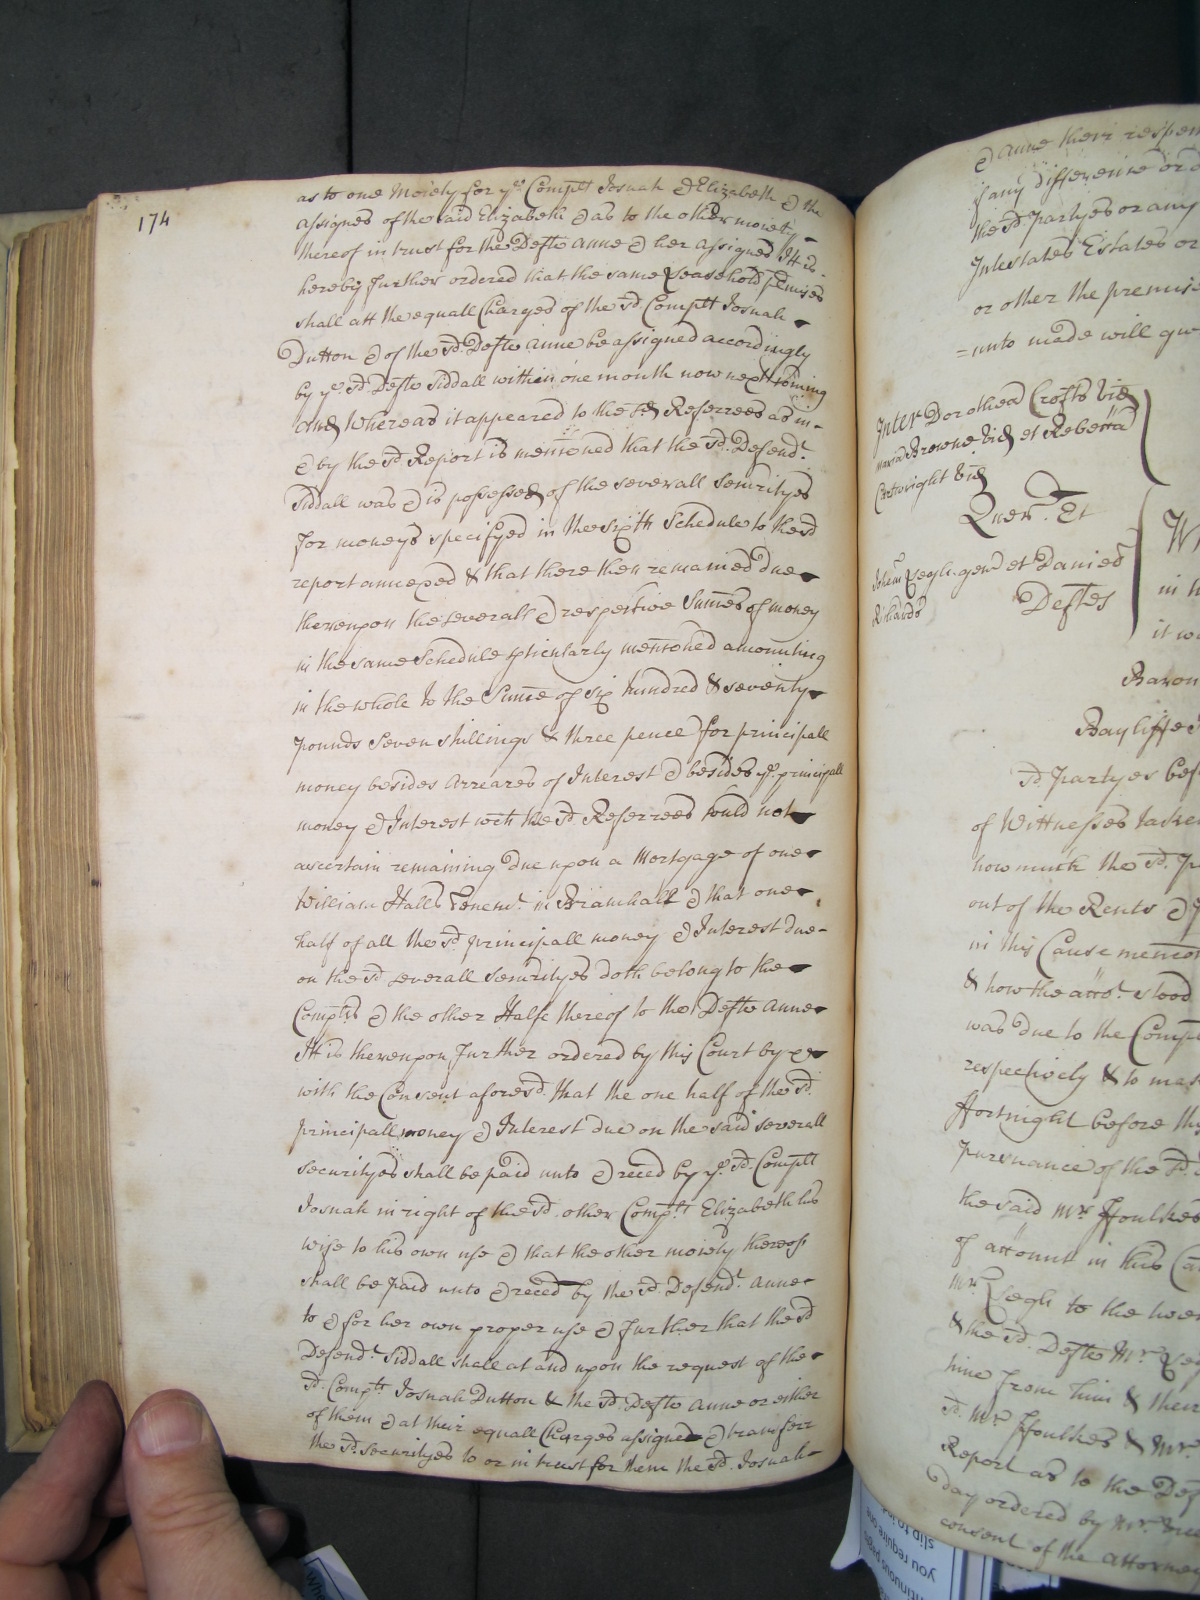 174
as to one Moiety for ye Complt Josuah & Elizabeth & the
assignes of the said Elizabeth & as to the other moiety
thereof in trust for the Defte Anne & her assignes Itt is
hereby further ordered that the same Leasehold pmisses
shall att the equall Charges of the sd Complt Josuah
Dutton & of the sd Defte Anne be assigned accordingly
by ye sd Defte Siddall within one month now next coming
And Whereas it appeared to the sd Referrees as in
& by the sd Report is mencioned that the sd Defendt
Siddall was & is possessed of the severall Securityes
for moneys specifyed in the sixth Schedule to the sd
report annexed & that there then remained due
thereupon the severall & respective Summes of money
in the same Schedule pticularly mencioned amounting
in the whole to the Summe of six hundred & seventy
pounds Seven shillings & three pence for principall
money besides Arreares of Interest & besides ye principall
money & Interest wch the sd Referrees could not
ascertain remaining due upon a Mortgage of one
William Halls Tenemt in Bramhall & that one
half of all the sd principall money & Interest due
on the sd severall Securityes doth belong to the
Complts & the other Halfe thereof to the Defte Anne
Itt is thereupon further ordered by this Court by &
with the Consent aforesd that the one half of the sd
principall money & Interest due on the said severall
securityes shall be paid unto & reced by ye sd Complt
Josuah in right of the sd other Complt Elizabeth his
wife to his own use & that the other moiety thereof
shall be paid unto & reced by the sd Defendt Anne
to & for her own proper use & further that the sd
Defendt Siddall shall at and upon the request of the
sd Complt Josuah Dutton & the sd Defte Anne or either
of them & at their equall Charges assigne & transferr
the sd securityes to or in trust for them the sd Josuah
& Anne their respec
if any difference or
the sd partyes or any
Intestates Estates or
or other the premise
=unto made will
Inter Dorothea Crofts vid
Maria Browne vid et Rebecca
Cartwright vid
Quer. Et
Johem Leigh gen et Daniel
Richards
Deftes
in
it
Baron
Bayliffe
sd partyes bef
of Wittnesses taken
how much the sd
out of the Rents &
in this Cause mencion
& how the accot stood
was due to the Comp
respectively & to mak
ffortnight before
pursuance of the sd
the said Mr ffoulkes
of account in this Ca
Mr Leigh to the
& the sd Defte Mr
time from him & their
sd Mr ffoulkes & Mr
Report as to the Def
day ordered by Mr
consent of the Attorney